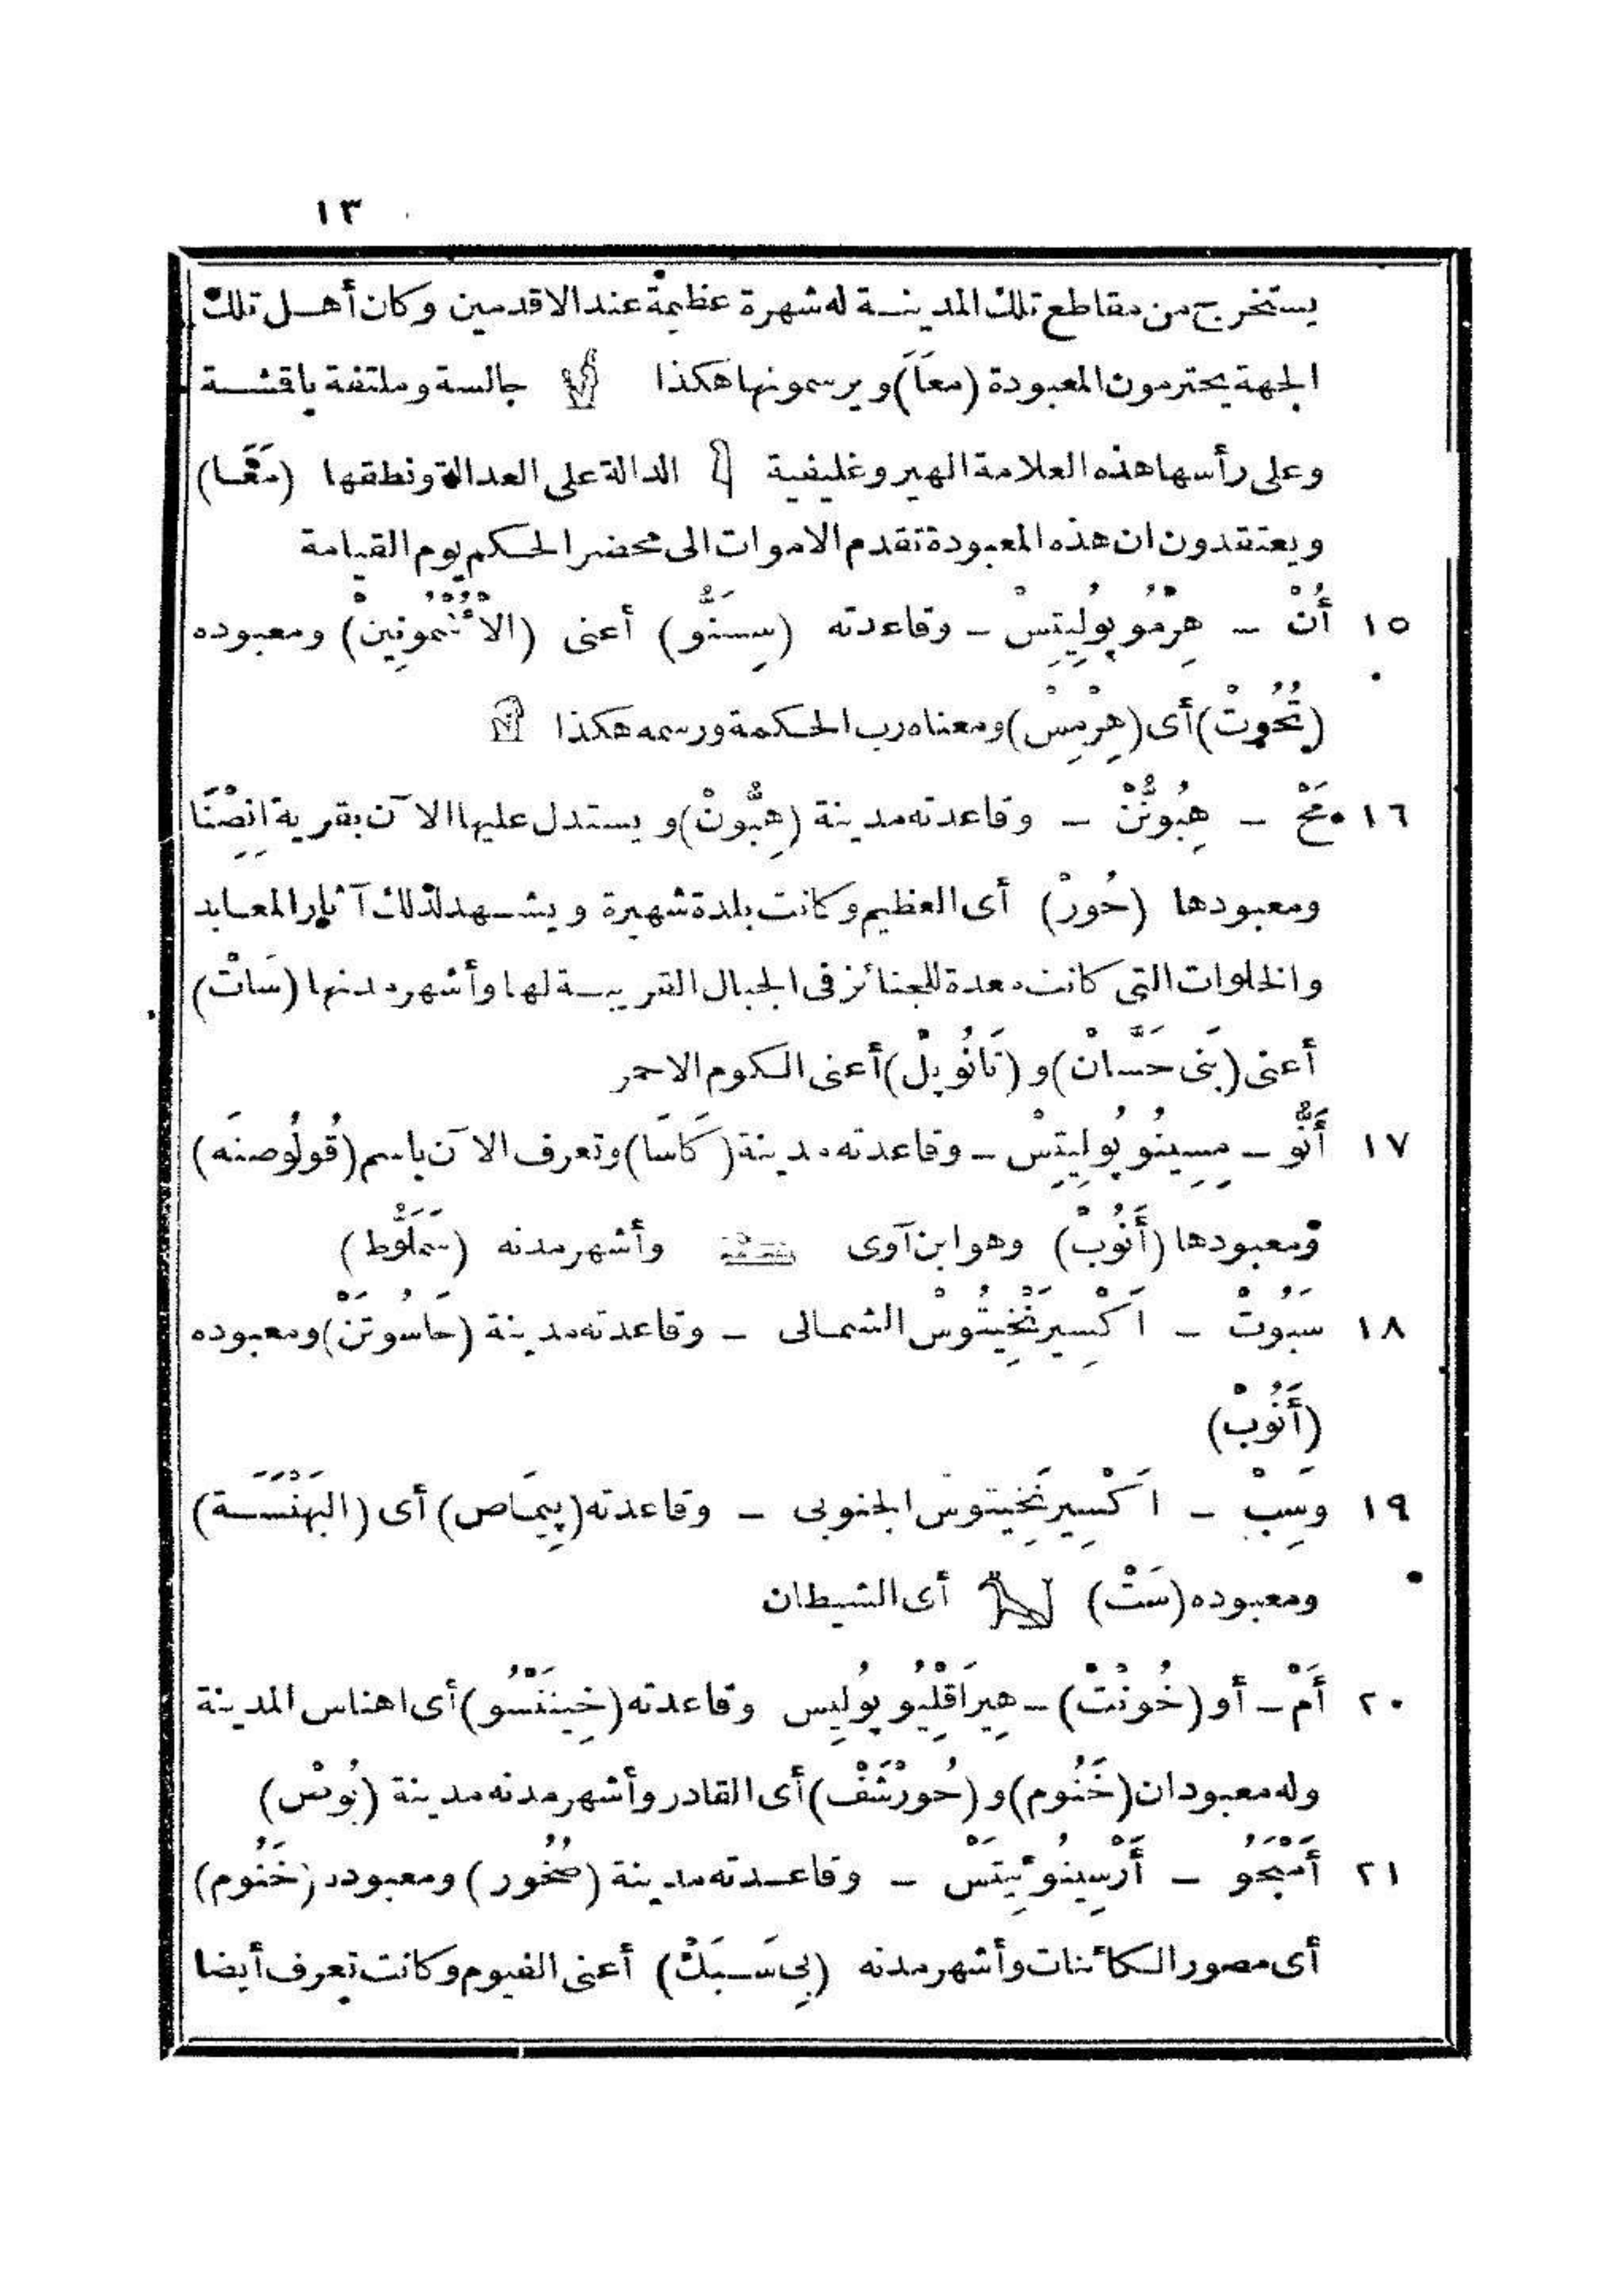 ١٣
يستخرج من مقاطع تلك المدينة له شهرة عظيمة عند الاقدمين وكان أهل تلك
الجهة يحترمون المعبودة (معَاَ) ويرسمونها هكذا جالسة وملتفة باقشة
وعلى رأسها هذه العلامة الهيروغليفية الدالة على العدالة ونطقها (مَعَا)
ويعتقدون ان هذه المعبودة تقدم الاموات الى محضر الحكم يوم القيامة
١٥ أُنْ – هِرْمُوپُولِيتِسْ – وقاعدته (سِسَنُّو) أعنى (الْأُشْمُونِينْ) ومعبوده
(تُحُوتْ) أى (هِرْمِسْ) ومعناه رب الحكمة ورسمه هكذا
١٦ مَحْ – هِبُونُّنْ – وقاعدته مدينة (هِبُّونْ) ويستدل عليها الآن بقرية اِنصِْنَا
ومعبودها (حُورْ) أى العظيم وكانت بلدة شهيرة ويشهد لذلك آثار المعابد
والخلوات التى كانت معدة للجنائز فى الجبال القريبة لها وأشهر مدنها (سَاتْ)
أعنى (بَنى حَسَّانْ) و (نَانُوبِلْ) أعنى الكوم الاحمر
١٧ أَنُّو – مِسِينُوپُولِيتِسْ – وقاعدته مدينة (كَاسَا) وتعرف الآن باسم (قُولُوصنَه)
ومعبودها (أَنُوبْ) وهو ابن آوى وأشهر مدنه (سَمَلُّوط)
١٨ سَبُوتْ – اَكْسِيرَنْخِيتُوسْ الشمالى – وقاعدته مدينة (حَاسُوتَنْ) ومعبوده
(أَنُوبْ)
١٩ وَسِبْ – اَكْسِيرنَخِيتوسْ الجنوبى – وقاعدته (پِيمَاص) أى (البَهَنْسَة)
ومعبوده (سَتْ) أى الشيطان
٢٠ أَمْ – أو (خُونْتْ) – هِيرَاقْلِيُوپُولِيس وقاعدته (خِينَنْسُو) أى اهناس المدينة
وله معبودان (خَنُوم) و (حُورْشَفْ) أى القادر وأشهر مدنه مدينة (بُوشْ)
٢١ أَمْبَحُو – أَرْسِينُوئِيتَسْ – وقاعدته مدينة (صُخُور) ومعبوده (خَنُوم)
أى مصور الكائنات وأشهر مدنه (بِى سَبَكْ) أعنى الفيوم وكانت تعرف أيضا